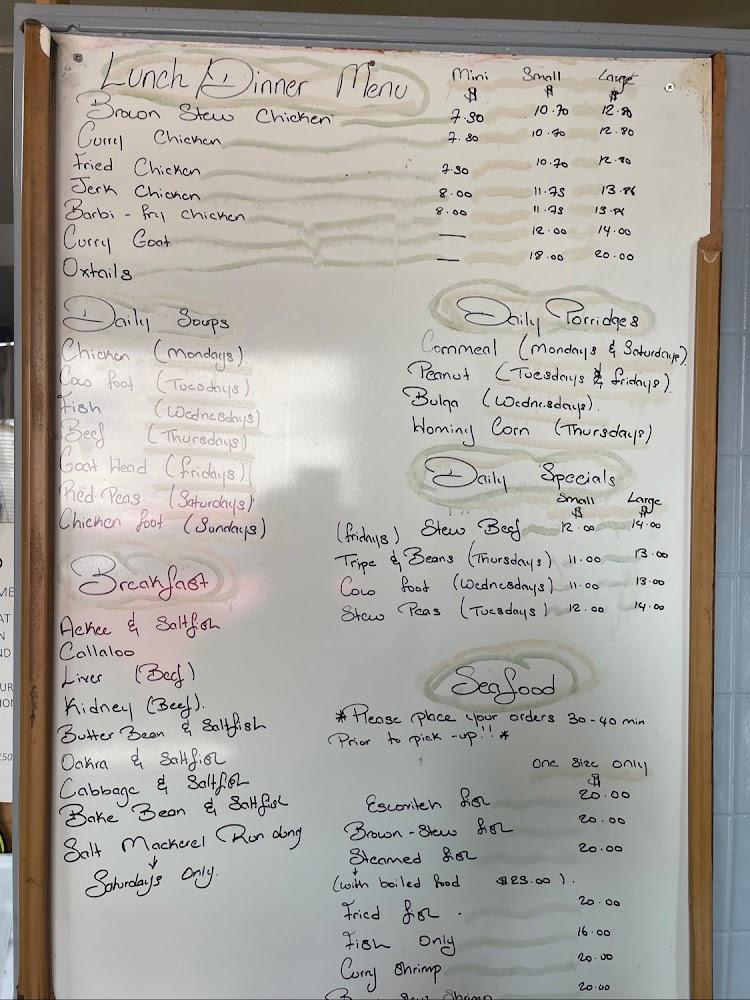 Lunch / Dinner Menu Mini Small Large
$ $ $
Brown Stew Chicken 7.30 10.70 12.80
Curry Chicken 7.30 10.70 12.80
Fried Chicken 7.30 10.70 12.80
Jerk Chicken 8.00 11.75
Barbi - Fry Chicken 8.00 11.75
Curry Goat — 12.00 14.00
Oxtails — 18.00 20.00
Daily Soups
Chicken (Mondays)
Coco foot (Tuesdays)
Fish (Wednesdays)
Beef (Thursdays)
Goat Head (fridays)
Red Peas (Saturdays)
Chicken foot (Sundays)
Breakfast
Ackee & Saltfish
Callaloo
Liver (Beef)
Kidney (Beef).
Butter Bean & Saltfish
Oakra & Saltfish
Cabbage & Saltfish
Bake Bean & Saltfish
Salt Mackerel Run dong
Saturdays Only.
Daily Porridges
Cornmeal (Mondays & Saturdays)
Peanut (Tuesdays & fridays).
Bulga (Wednesdays).
Hominy Corn (Thursdays)
Daily Specials
Small Large
$ $
(fridays) Stew Beef 12.00 14.00
Tripe & Beans (Thursdays) 11.00 13.00
Coco foot (Wednesdays) 11.00 13.00
Stew Peas (Tuesdays) 12.00 14.00
Seafood
*Please place your orders 30-40 min
Prior to pick-up!!*
One Size only
$
Escoviteh fish 20.00
Brown-Stew fish 20.00
Steamed fish 20.00
(with boiled food $25.00).
Fried fish. 20.00
Fish Only 16.00
Curry Shrimp 20.00
Brown Stew Shrimp 20.00